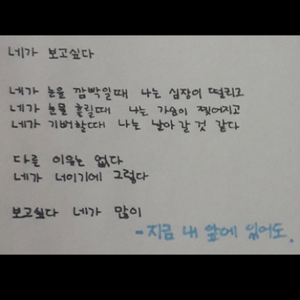 네가 보고싶다
네가 눈을 깜빡일때 나는 심장이 떨리고
네가 눈물 흘릴때 나는 가슴이 찢어지고
네가 기뻐할때 나는 날아갈것 같다
다른 이유는 없다
네가 너이기에 그렇다
보고싶다 네가 많이
-지금 내 앞에 있어도.